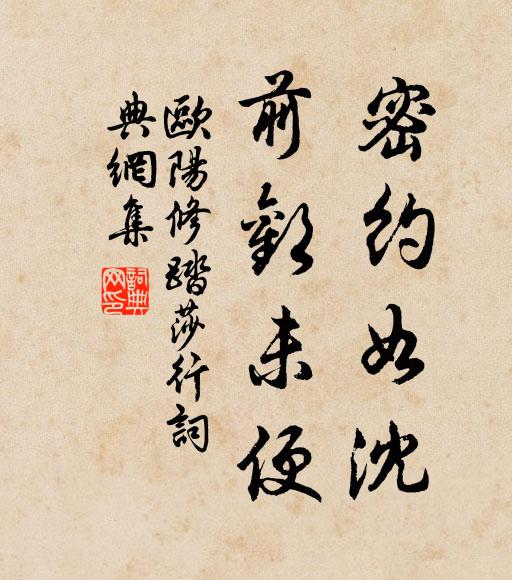 密約如沈
前歡未便
歐陽修踏莎行詞
典網集
詞典網印